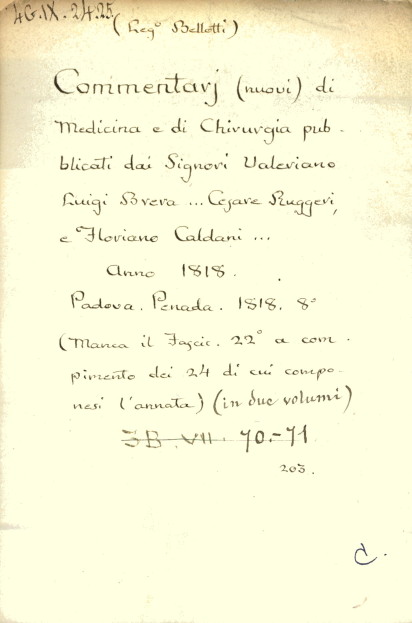 4G.IX.24.25
(Leg.º Bellotti)
Commentarj (nuovi) di
Medicina e di Chirurgia pub-
blicati dai Signori Valeriano
Luigi Brera ... Cesare Ruggeri,
e Floriano Caldani ...
Anno 1818.
Padova. Penada. 1818. 8º
(Manca il Fascic. 22º a com-
pimento dei 24 di cui compo-
nesi l'annata) (in due volumi)
3B. VII. 70.-71
203.
C.